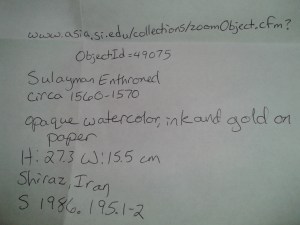 www.asia.si.edu/collections/zoomObject.cfm?
ObjectId=49075
Sulayman Enthroned
circa 1560-1570
opaque watercolor, ink and gold on
paper
H: 27.3 W: 15.5 cm
Shiraz, Iran
S 1986.195.1-2